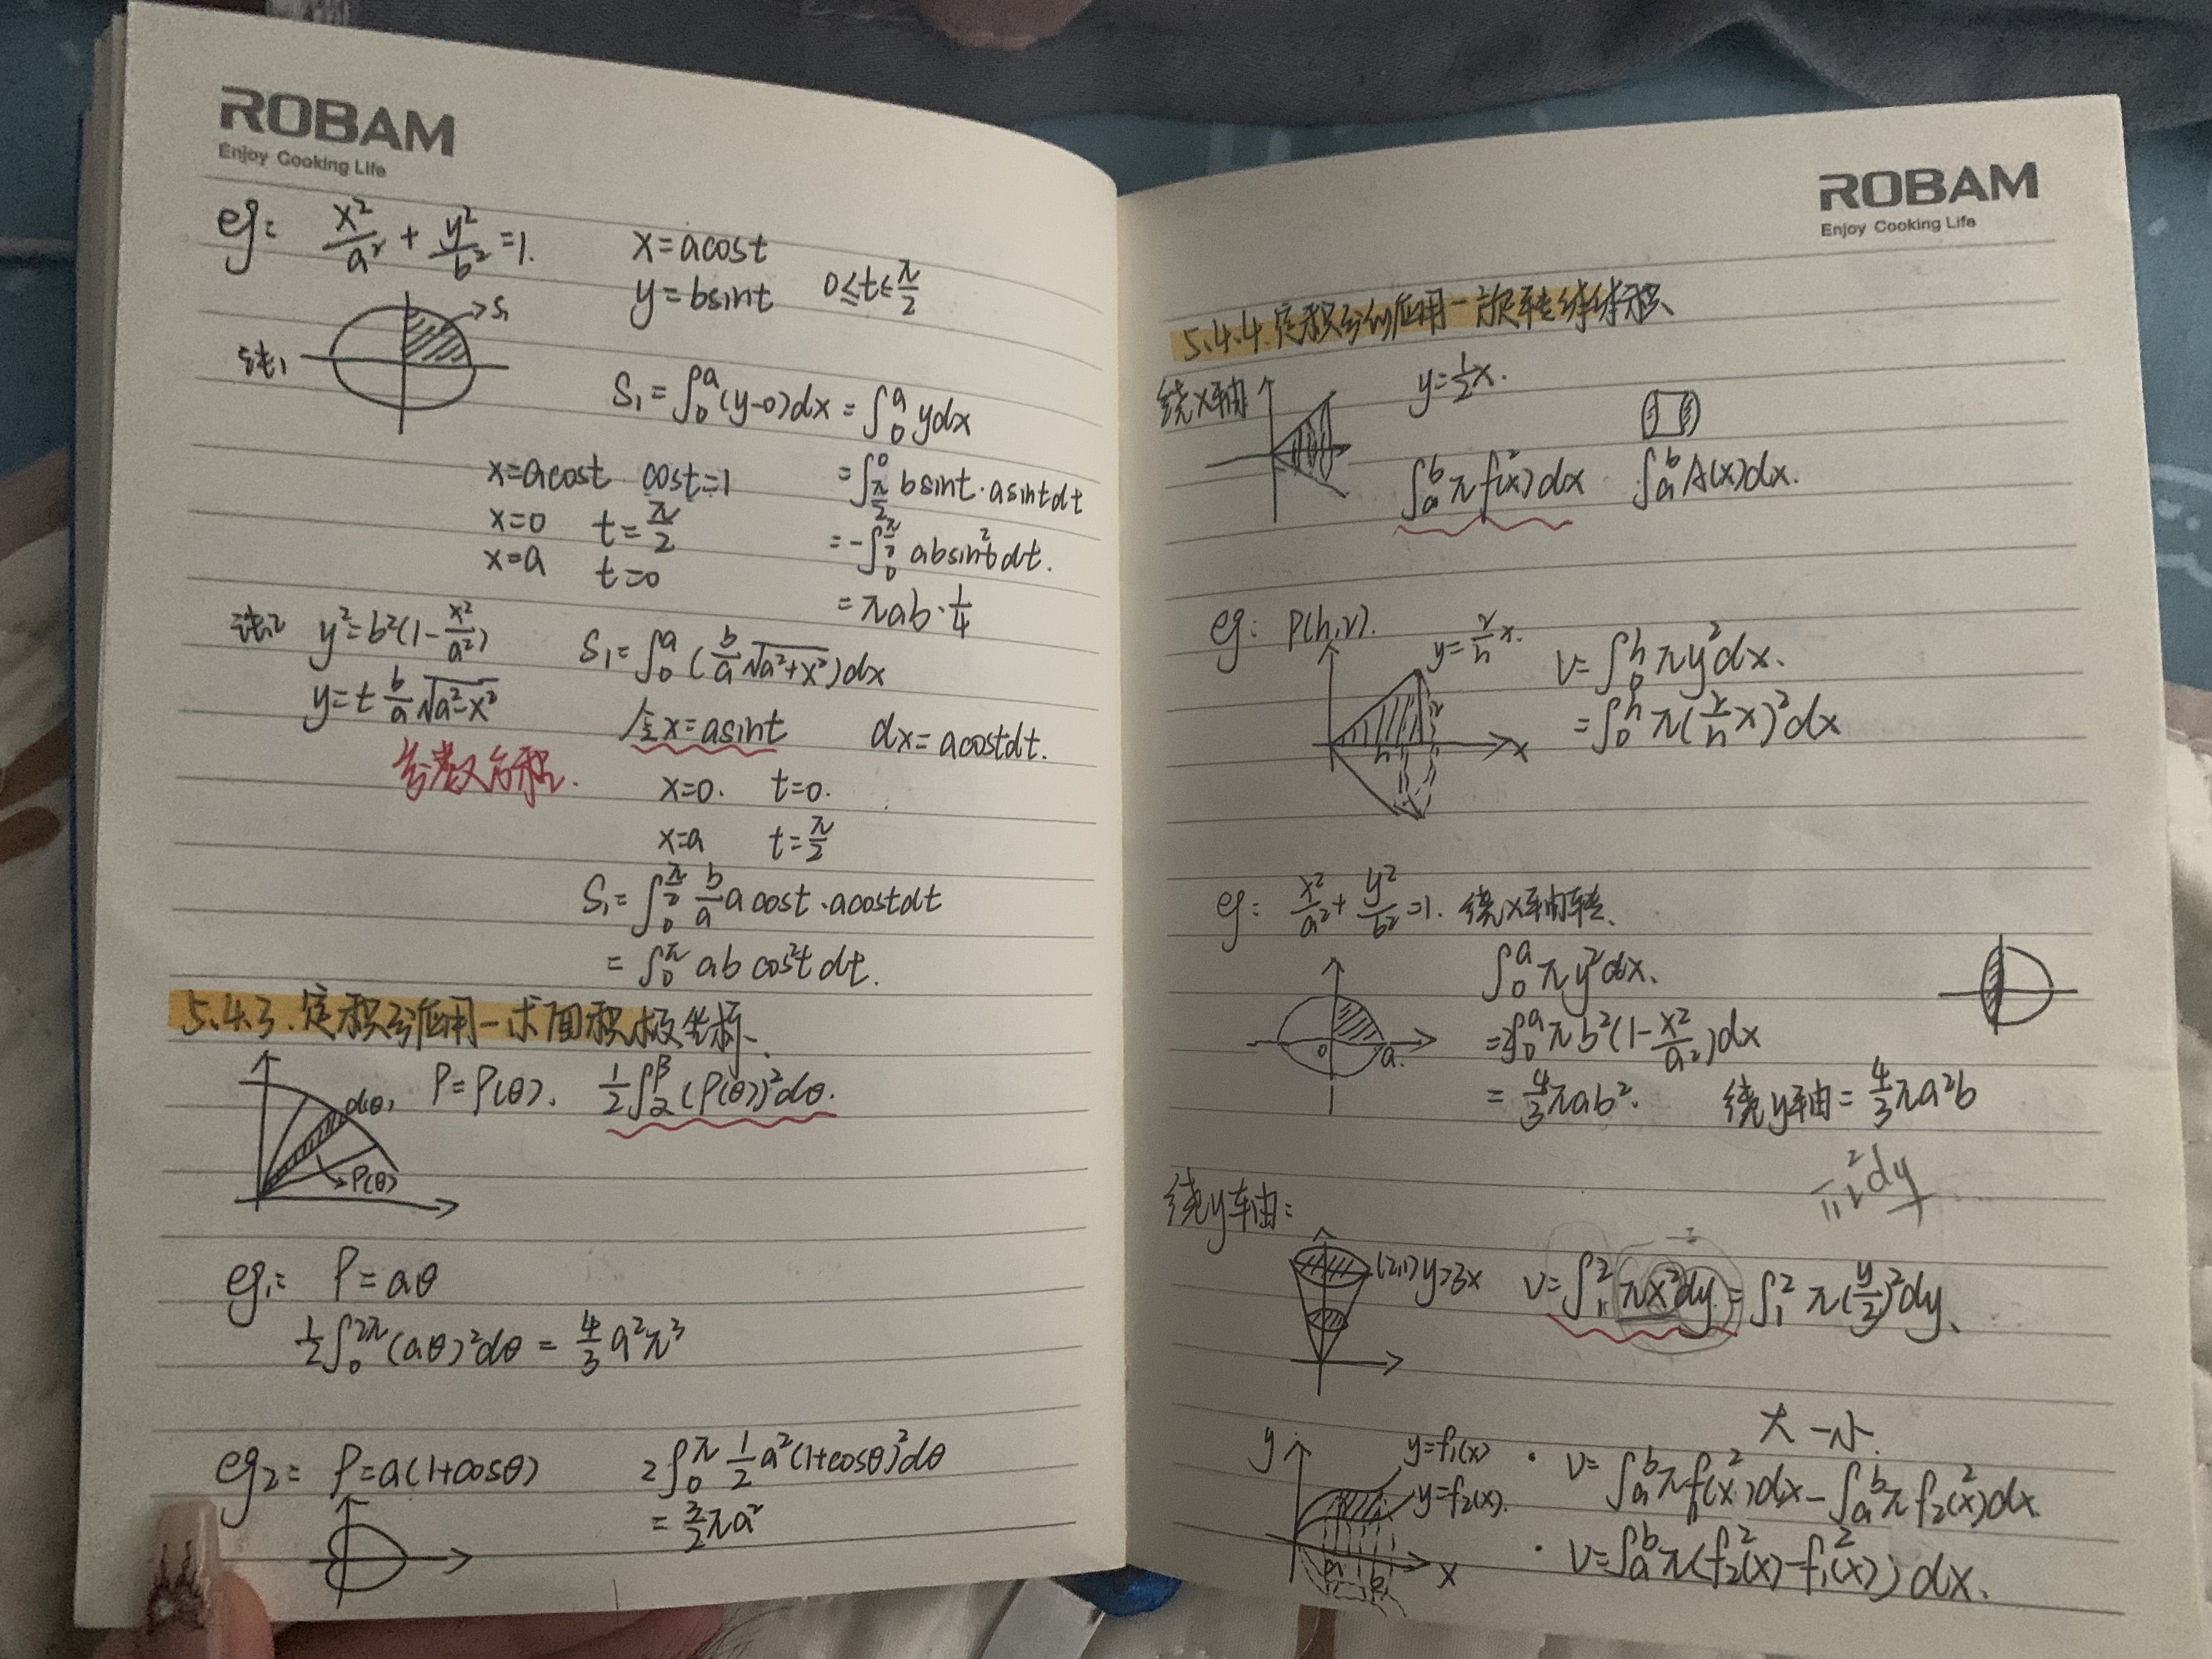 ROBAM
Enjoy Cooking Life
eg: x²/a² + y²/b² = 1. x=acost
y=bsint 0≤t≤π/2
S₁
法1
S₁=∫₀ᵃ(y-0)dx=∫₀ᵃydx
x=acost cost=1 =∫_{π/2}^0 bsint·asintdt
x=0 t=π/2 =-∫_0^{π/2} absin²tdt.
x=a t=0
=πab·1/4
法2 y²=b²(1-x²/a²) S₁=∫₀ᵃ(b/a √(a²+x²))dx
y=± b/a √(a²-x²)
令x=asint dx=acostdt.
参数方程.
x=0. t=0.
x=a t=π/2
S₁=∫_0^{π/2} b/a acost·acostdt
=∫_0^π abcos²tdt.
5.4.3.定积分应用-求面积极坐标.
d(θ)
P=P(θ). 1/2∫_α^β(P(θ))²dθ.
P(θ)
eg₁= P=aθ
1/2∫_0^{2π}(aθ)²dθ=4/3a²π³
eg₂= P=a(1+cosθ) 2∫_0^π 1/2a²(1+cosθ)²dθ
=3/2πa²
ROBAM
Enjoy Cooking Life
5.4.4.定积分的应用-旋转体体积
绕x轴 y=1/2x.
∫_a^b πf²(x)dx ∫_a^b A(x)dx.
eg: P(h,r).
y=r/h x. V=∫_0^h πy²dx.
r
h
x
=∫_0^h π(r/h x)²dx
eg: x²/a²+y²/b²=1. 绕x轴转
∫_0^a πy²dx.
0 a.
=2∫_0^a πb²(1-x²/a²)dx
=4/3πab². 绕y轴=4/3πa²b
πr²dy
绕y轴:
y=3x V=∫_1^2 πx²dy=∫_1^2 π(y/3)²dy.
大-小.
y y=f₁(x) · V=∫_a^b πf₁²(x)dx-∫_a^b πf₂²(x)dx
y=f₂(x).
a b x
· V=∫_a^b π(f₂²(x)-f₁²(x))dx.